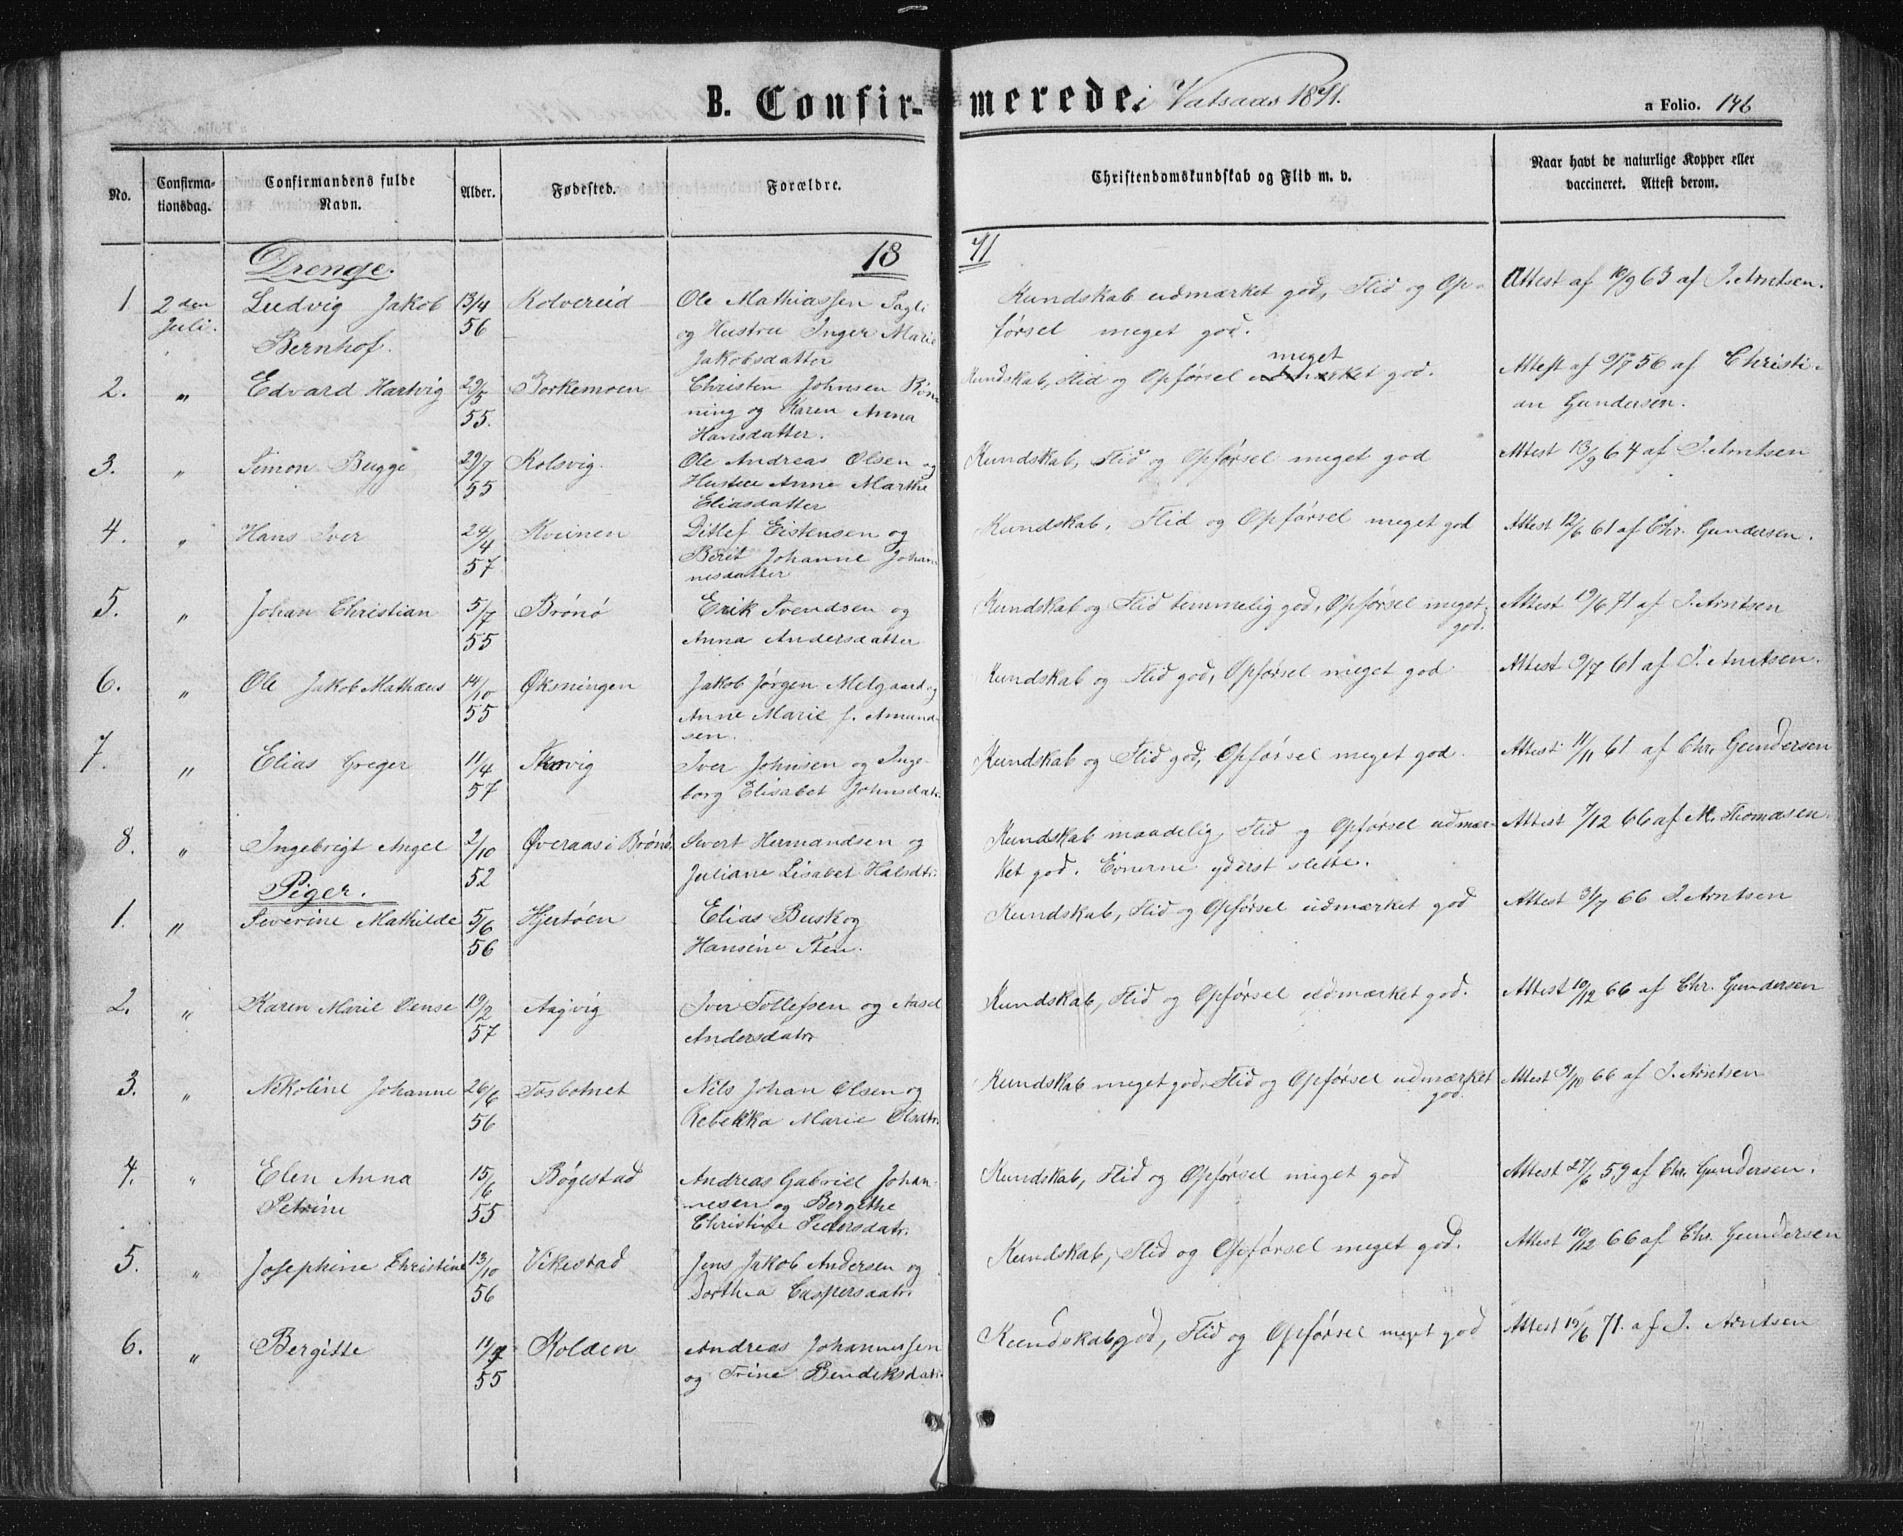 B. Confirmerede i Vatsaas 1871.
a Folio. 146
No.
Confirma-
tionsdag.
Confirmandens fulde
Navn.
Alder.
Fødested.
Forældre.
Christendomskundskab og Flid m. v.
Naar havt de naturlige Kopper eller
vaccineret. Attest derom.
Drenge.
18 71
1. 2den Ludvig Jakob 13/4 Kolvereid Ole Mathiassen Fagli Kundskab udmærket god, Flid og Op- Attest af 10/9 63 af J. Arntsen.
Juli. Bernhof. 56 og Hustru Inger Marie førsel meget god.
Jakobsdatter
2. " Edvard Hartvig 29/5 Borkemoen Christen Johnsen Røn- Kundskab, Flid og Opførsel udmærket meget god. Attest af 9/7 56 af Christi-
55. ning og Karen Anna an Gundersen.
Hansdatter.
3. " Simon Bugge 29/7 Kolsvig. Ole Andreas Olsen og Kundskab, Flid og Opførsel meget god Attest 13/9 64 af J. Arntsen
55 Hustru Anne Marthe
Eliasdatter
4. " Hans Iver 24/4 Kvinen Ditlef Eistensen og Kundskab, Flid og Opførsel meget god Attest 12/6 61 af Chr. Gundersen.
57 Berit Johanne Johan-
nesdatter
5. " Johan Christian 5/7 Brønø Erik Svendsen og Kundskab og Flid temmelig god, Opførsel meget Attest 19/6 71 af J. Arntsen
55 Anna Andersdatter god.
6. " Ole Jakob Mathæus 14/10 Øksningen Jakob Jørgen Melgaard og Kundskab og Flid god, Opførsel meget god Attest 9/7 61 af J. Arntsen.
55 Anne Marie f. Amund-
sen.
7. " Elias Greger 11/4 Iver Johnsen og Inge- Kundskab og Flid god, Opførsel meget god. Attest 11/11 61 af Chr. Gundersen
57 borg Elisabet Johnsdatr.
8. " Ingebrigt Angel 2/10 Øveraas i Brønø. Sivert Hermandsen og Kundskab maadelig, Flid og Opførsel udmær- Attest 7/12 66 af M. Thomasen.
52 Juliane Lisabet Halsdtr. ket god. Evnerne yderst slette.
Piger.
1. " Severine Mathilde 5/6 Hjertøen Elias Busk og Kundskab, Flid og Opførsel udmærket god Attest 3/7 66 J. Arntsen
56 Hansine Steen.
2. " Karen Marie Oense 19/2 Aagvig Iver Tollefsen og Aasel Kundskab, Flid og Opførsel udmærket god. Attest 10/12 66 af Chr. Gundersen
57 Andersdatr
3. " Nikoline Johanne 26/6 Tosbotnet Nils Johan Olsen og Kundskab meget god, Flid og Opførsel udmærket Attest 9/10 66 af J. Arntsen
56 Rebekka Marie Olsdtr. god.
4. " Elen Anna 15/6 Bøgestad Andreas Gabriel Johan- Kundskab, Flid og Opførsel meget god Attest 27/6 59 af Chr. Gundersen.
Petrine 55 nesen og Borgithe
Christine Pedersdatr.
5. " Josephine Christine 13/10 Vikestad Jens Jakob Andersen og Kundskab, Flid og Opførsel meget god. Attest 10/12 66 af Chr. Gundersen
56 Dorthea Caspersdatr.
6. " Bergitte 11/7 Kolden Andreas Johannessen Kundskab god, Flid og Opførsel meget god Attest 19/6 71. af J. Arntsen
55 og Trine Bendiksdatr.